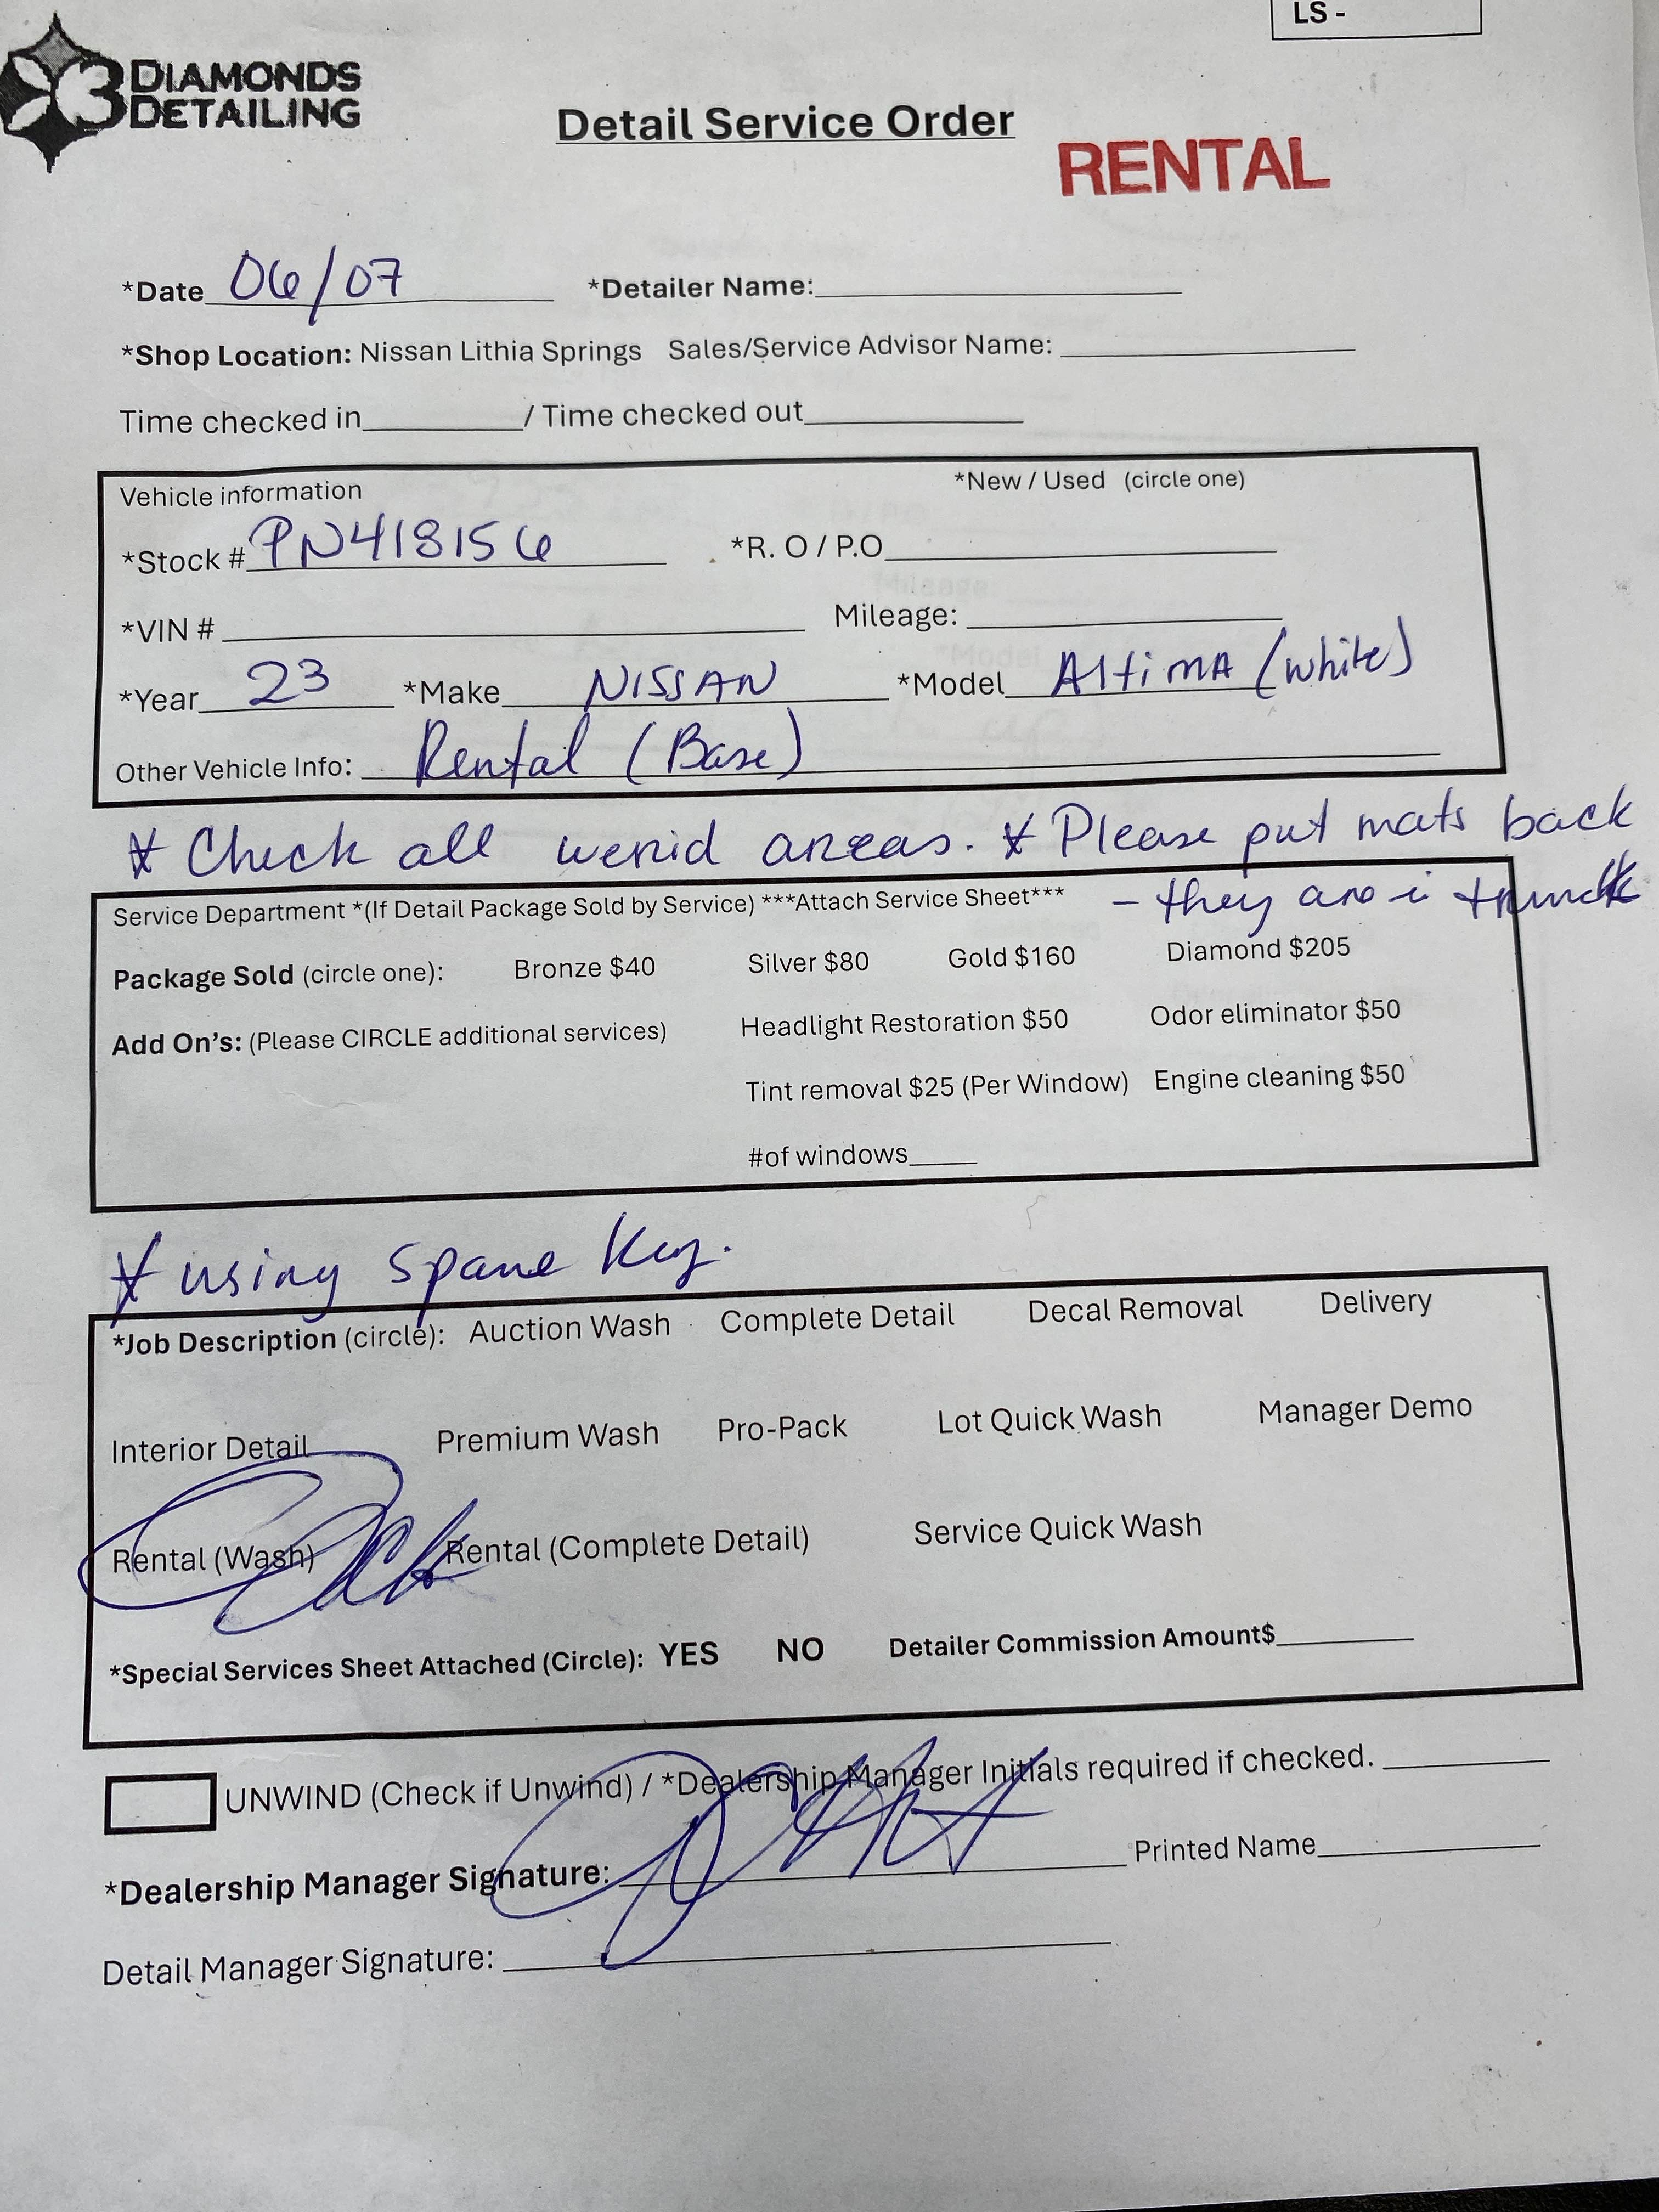 LS -
3 DIAMONDS
DETAILING
Detail Service Order
RENTAL
*Date 06/07 *Detailer Name:
*Shop Location: Nissan Lithia Springs Sales/Service Advisor Name:
Time checked in / Time checked out
Vehicle information *New / Used (circle one)
*Stock # PN418156 *R. O / P.O
*VIN # Mileage:
*Year 23 *Make NISSAN *Model AltimA (white)
Other Vehicle Info: Rental (Base)
* Check all werid areas. * Please put mats back
- they are i trunk
Service Department *(If Detail Package Sold by Service) ***Attach Service Sheet***
Package Sold (circle one): Bronze $40 Silver $80 Gold $160 Diamond $205
Add On's: (Please CIRCLE additional services) Headlight Restoration $50 Odor eliminator $50
Tint removal $25 (Per Window) Engine cleaning $50
#of windows
* using spare key.
*Job Description (circle): Auction Wash Complete Detail Decal Removal Delivery
Interior Detail Premium Wash Pro-Pack Lot Quick Wash Manager Demo
Rental (Wash) Rental (Complete Detail) Service Quick Wash
*Special Services Sheet Attached (Circle): YES NO Detailer Commission Amount$
UNWIND (Check if Unwind) / *Dealership Manager Initials required if checked.
*Dealership Manager Signature: Printed Name
Detail Manager Signature: